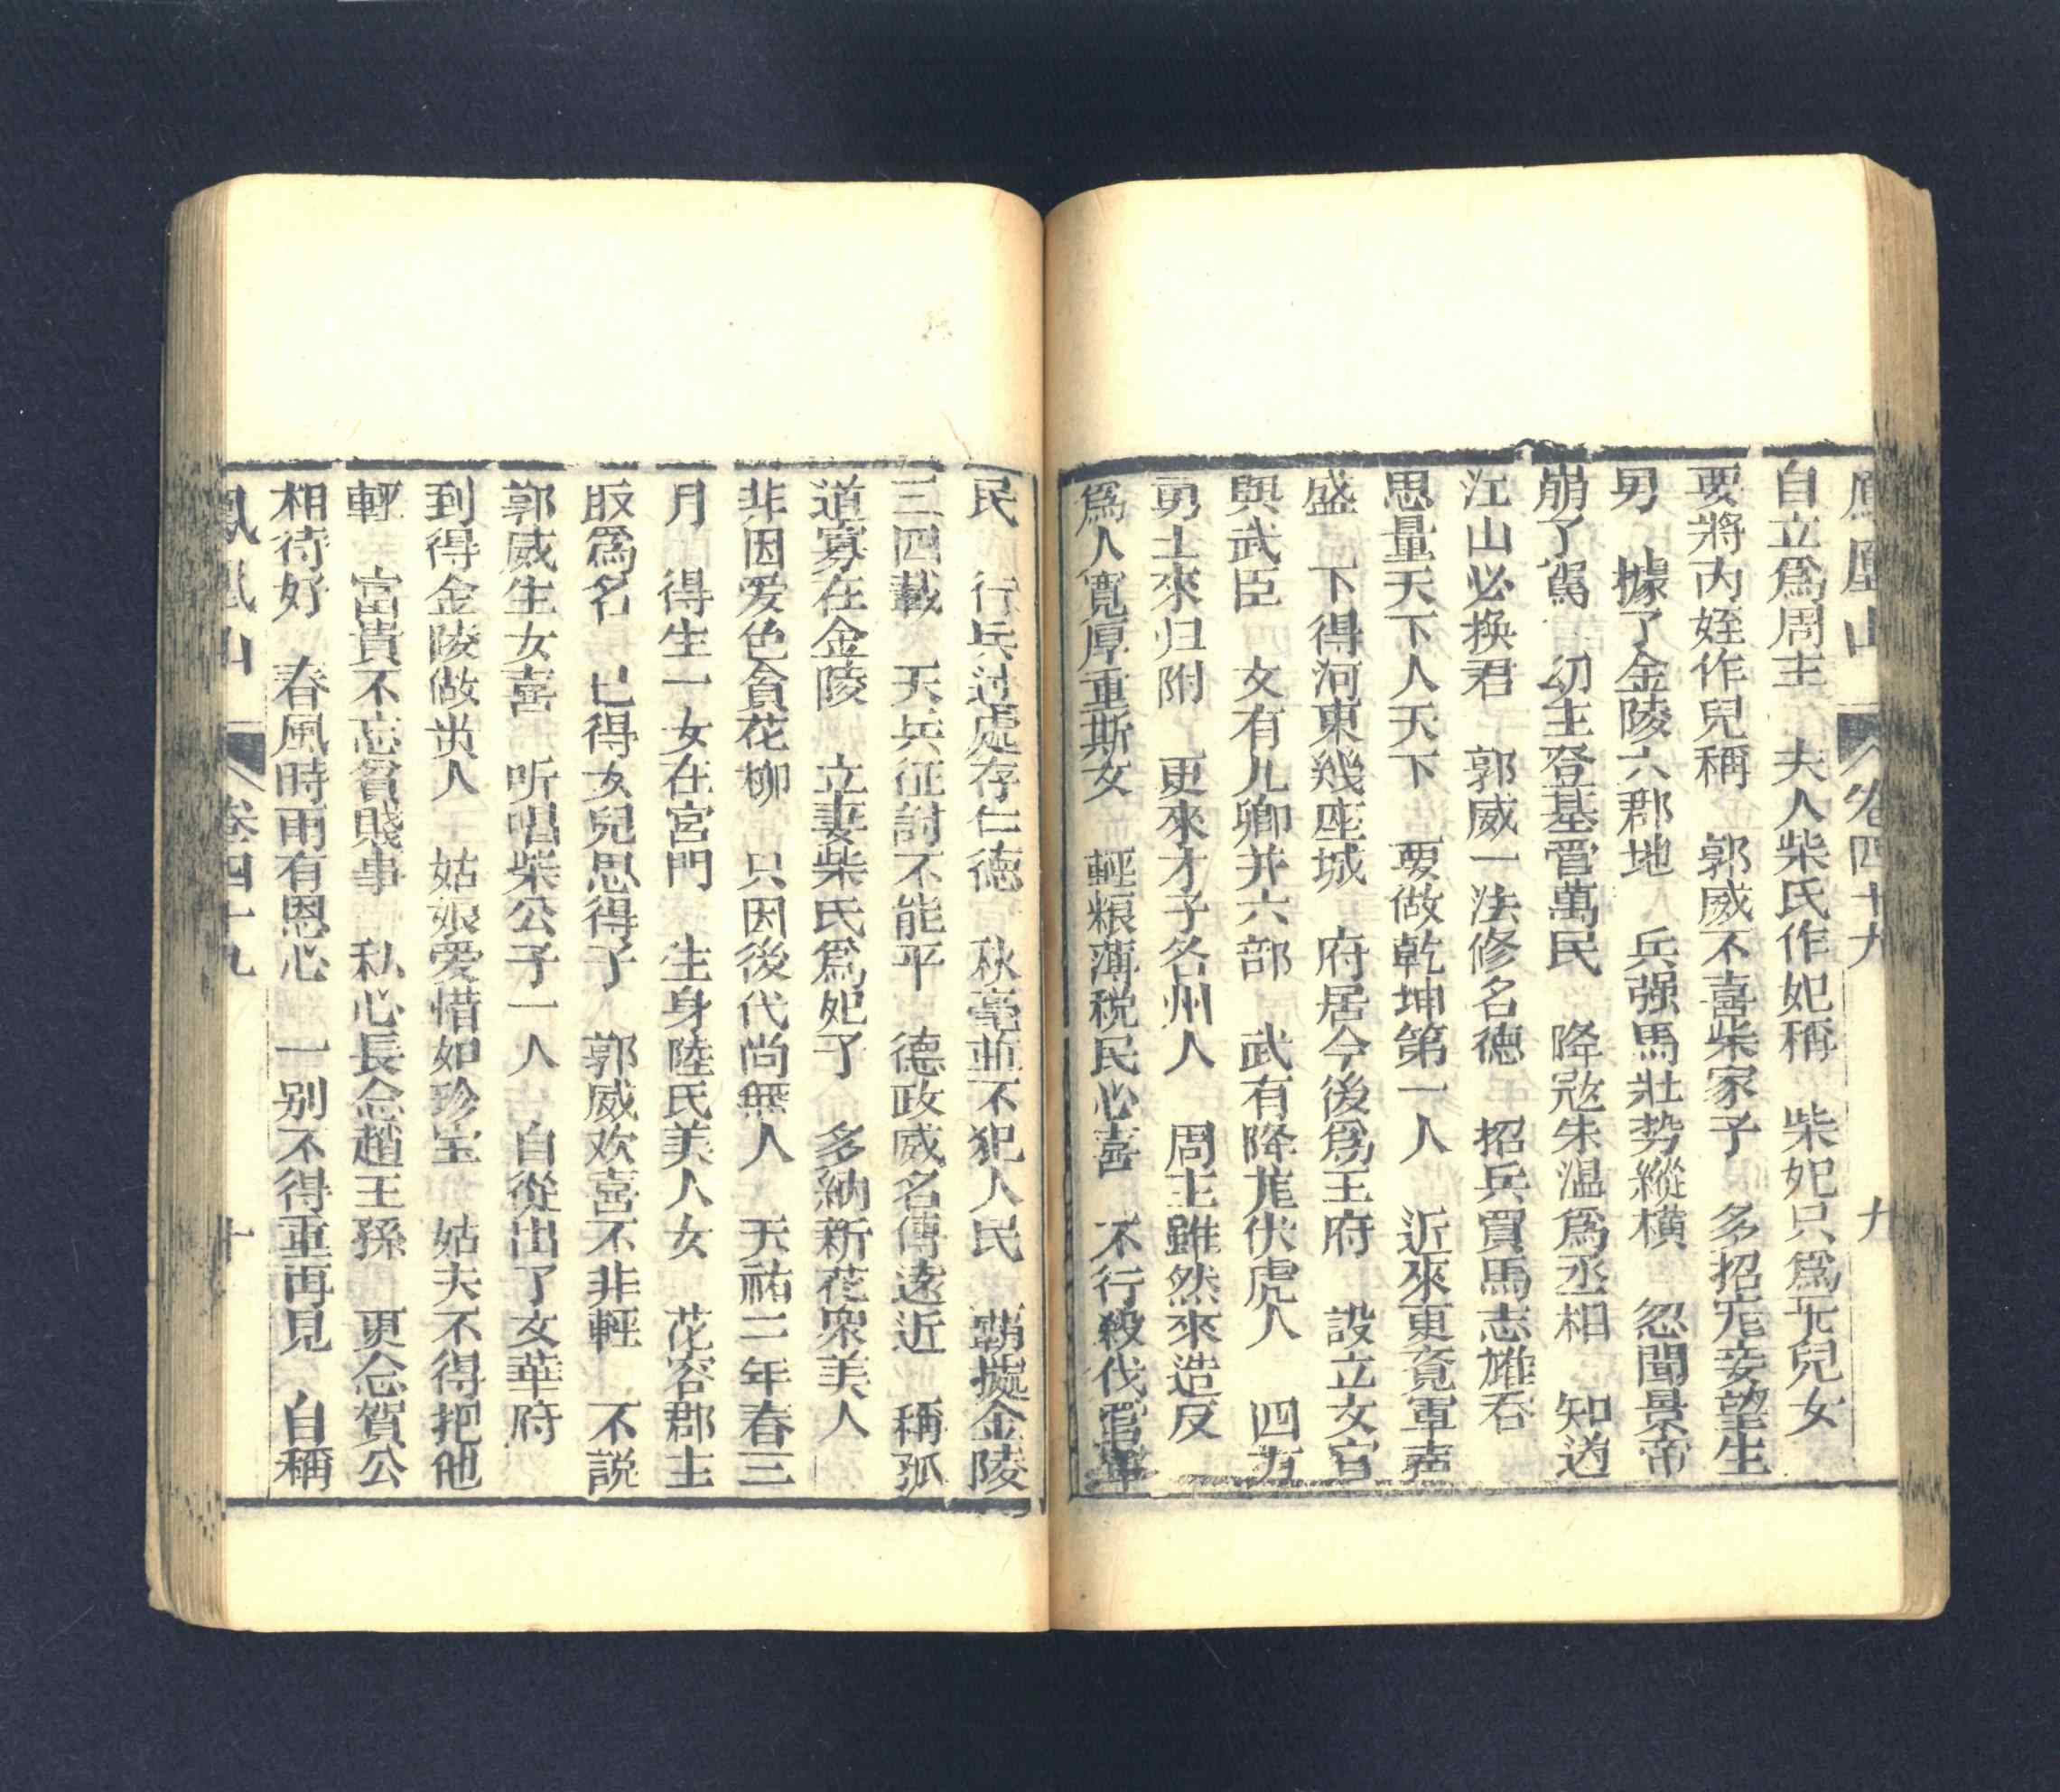 鳳凰山 卷四十九 九
自立爲周主 夫人柴氏作妃稱 柴妃只爲无兒女
要將內姪作兒稱 郭威不喜柴家子 多招宠妾望生
男 據了金陵六郡地 兵强馬壯势縱橫 忽聞景帝
崩了駕 幼主登基管萬民 降冦朱温爲丞相 知道
江山必换君 郭威一法修名德 招兵買馬志雄吞
思量天下人天下 要做乾坤第一人 近來更覓軍声
盛 下得河東幾座城 府居今後爲王府 設立文官
與武臣 文有九卿并六部 武有降龙伏虎人 四方
勇士來归附 更來才子各州人 周主雖然來造反
爲人寬厚重斯文 輕粮薄税民心喜 不行殺伐害軍
民 行兵过處存仁德 秋毫並不犯人民 霸據金陵
三四載 天兵征討不能平 德政威名傳遠近 稱孤
道寡在金陵 立妻柴氏爲妃子 多納新花衆美人
非因爱色貪花柳 只因後代尚無人 天祐二年春三
月 得生一女在宮門 生身陸氏美人女 花容郡主
取爲名 已得女兒思得子 郭威欢喜不非輕 不説
郭威生女喜 听唱柴公子一人 自從出了文華府
到得金陵做贵人 姑娘爱惜如珍宝 姑夫不得把他
輕 富貴不忘貧賤事 私心長念趙王孫 更念賀公
相待好 春風時雨有恩心 一别不得重再見 自稱
鳳凰山 卷四十九 十